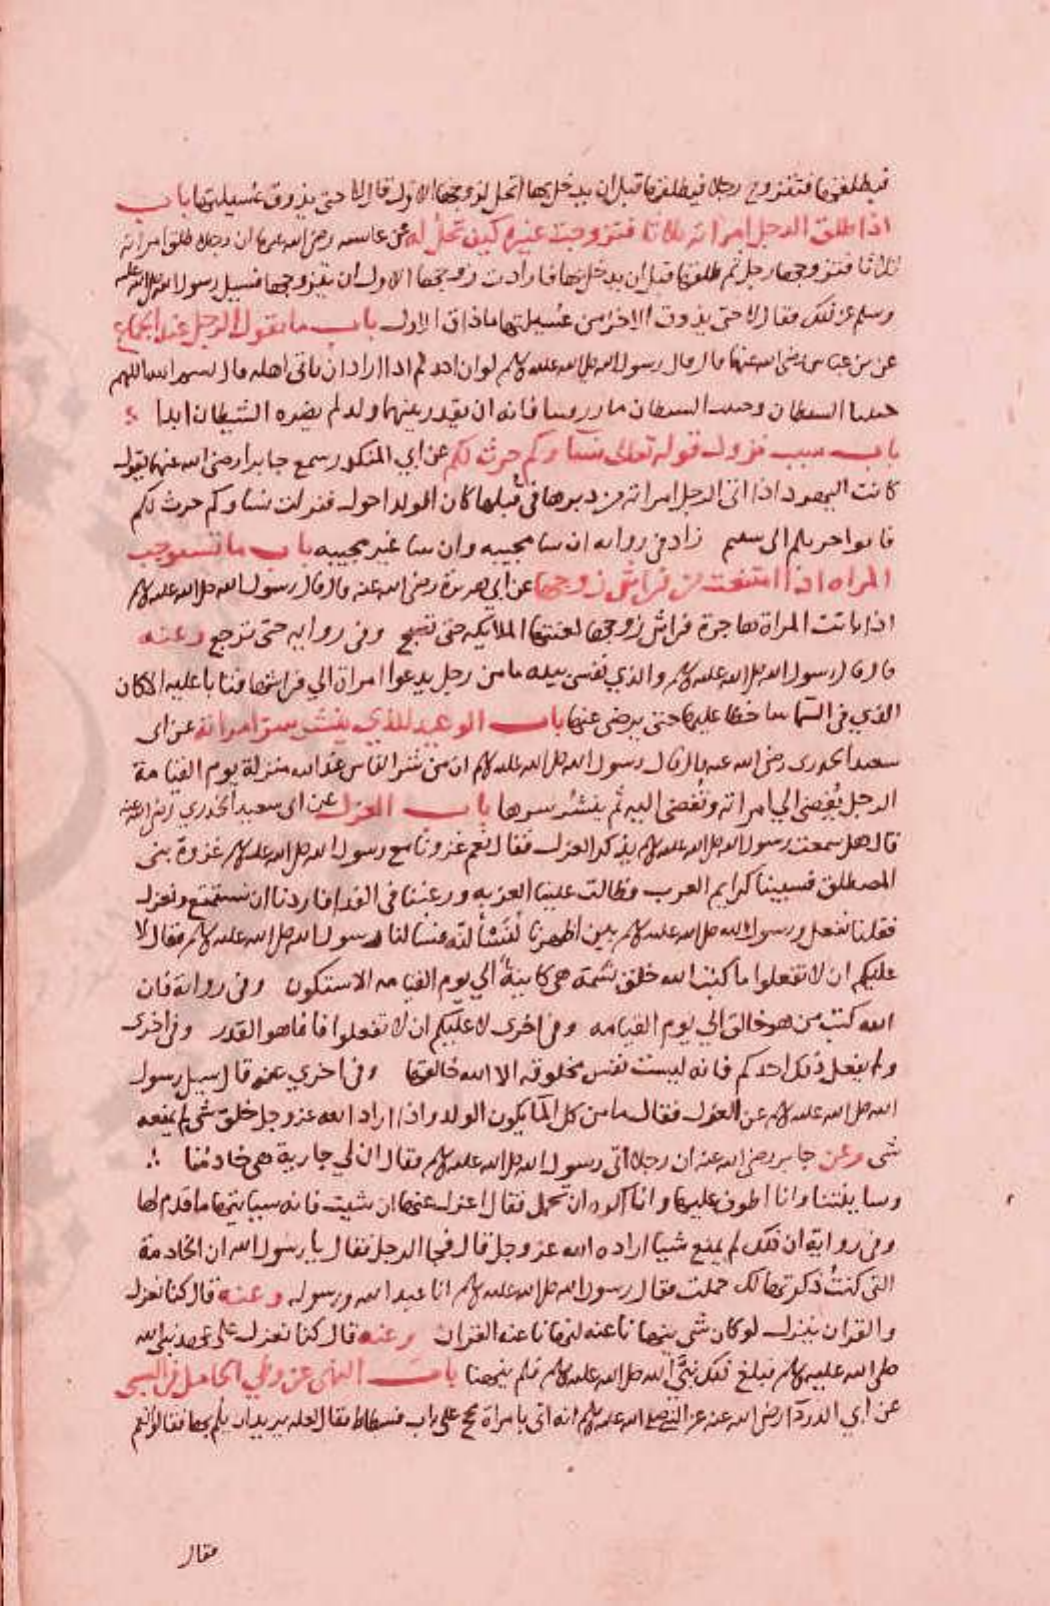 فيطلقها فتتزوج رجلا فيطلقها قبل ان يدخل بها اتحل لزوجها الاول قال لا حتى يذوق عسيلتها باب
اذا طلق الرجل امراته ثلاثا فتزوجت غيره كيف تحل له عن عايشه رضي الله عنها ان رجلا طلق امراته
ثلاثا فتزوجها رجل ثم طلقها قبل ان يدخل بها فارادت زوجها الاول ان يتزوجها فسيل رسول الله صلى الله عليه
وسلم عن ذلك فقال لا حتى يذوق الاخر من عسيلتها ما ذاق الاول باب ما يقول الرجل عند الجماع
عن بن عباس رضي الله عنهما قال قال رسول الله صلى الله عليه وسلم لو ان احدكم اذا اراد ان ياتي اهله قال بسم الله اللهم
جنبنا الشيطان وجنب الشيطان ما رزقتنا فانه ان يقدر بينهما ولد لم يضره الشيطان ابدا
باب سبب نزول قوله تعالى نساوكم حرث لكم عن ابي المنكدر سمع جابرا رضي الله عنهما يقول
كانت اليهود اذا اتى الرجل امراته من دبرها في قبلها كان الولد احول فنزلت نساوكم حرث لكم
فاتوا حرثكم انى شيتم زاد في روايه ان شا مجبيه وان شا غير مجبيه باب ما تستوجب
المراه اذا امتنعت من فراش زوجها عن ابي هريرة رضي الله عنه قال قال رسول الله صلى الله عليه وسلم
اذا باتت المراة هاجرة فراش زوجها لعنتها الملايكه حتى تصبح وفي روايه حتى ترجع وعنه
قال قال رسول الله صلى الله عليه وسلم والذي نفسي بيده ما من رجل يدعوا امراة الي فراشها فتابا عليه الا كان
الذي في السما ساخطا عليها حتى يرضى عنها باب الوعيد للذي ينشر سر امراته عن ابى
سعيد الخدرى رضي الله عنه قال قال رسول الله صلى الله عليه وسلم ان من شر الناس عند الله منزلة يوم القيامة
الرجل يفضي الي امراته وتفضي اليه ثم ينشر سرها باب العزل عن ابى سعيد الخدري رضي الله عنه
قال هل سمعت رسول الله صلى الله عليه وسلم يذكر العزل فقال نعم غزونا مع رسول الله صلى الله عليه وسلم غزوة بنى
المصطلق فسبينا كرايم العرب فطالت علينا العزبه ورغبنا في الفدا فاردنا ان نستمتع ونعزل
فقلنا نفعل ورسول الله صلى الله عليه وسلم بين اظهرنا فسالنا رسول الله صلى الله عليه وسلم فقال لا
عليكم ان لا تفعلوا ما كتب الله خلق نسمة هي كاينة الي يوم القيامه الا ستكون وفي رواية فان
الله كتب من هو خالق الي يوم القيامه وفي اخرى لا عليكم ان لا تفعلوا فانما هو القدر وفي اخرى
ولم يفعل ذلك احدكم فانه ليست نفس مخلوقه الا الله خالقها وفي اخري عنه قال سيل رسول
الله صلى الله عليه وسلم عن العزل فقال ما من كل الما يكون الولد واذا اراد الله عز وجل خلق شي لم يمنعه
شى وعن جابر رضي الله عنه ان رجلا اتى رسول الله صلى الله عليه وسلم فقال ان لي جارية هي خادمنا
وسايقتنا وانا اطوف عليها وانا اكره ان تحمل فقال اعزل عنها ان شيت فانه سياتيها ما قدر لها
وفي رواية ان ذلك لم يمنع شيا اراده الله عز وجل قال فجا الرجل فقال يا رسول الله ان الخادمة
التى كنت ذكرتها لك حملت فقال رسول الله صلى الله عليه وسلم انا عبد الله ورسوله وعنه قال كنا نعزل
والقران ينزل لو كان شي ينها عنه لنهانا عنه القران وعنه قال كنا نعزل على عهد نبي الله
صلى الله عليه وسلم فبلغ ذلك نبي الله صلى الله عليه وسلم فلم ينهنا باب النهي عن وطي الحامل من السبي
عن ابي الدردا رضي الله عنه عن النبي صلى الله عليه وسلم انه اتى بامراة مجح على باب فسطاط فقال لعله يريد ان يلم بها فقالوا نعم
فقال